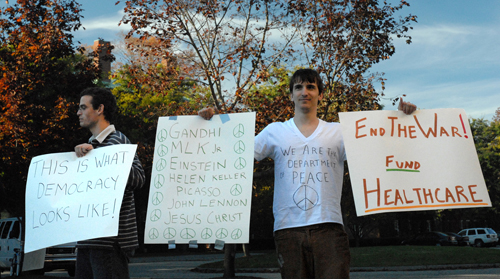 THIS IS WHAT
DEMOCRACY
LOOKS LIKE!
GANDHI
MLK JR
EINSTEIN
HELEN KELLER
PICASSO
JOHN LENNON
JESUS CHRIST
WE ARE THE
DEPARTMENT
OF
PEACE
END THE WAR!
FUND
HEALTHCARE